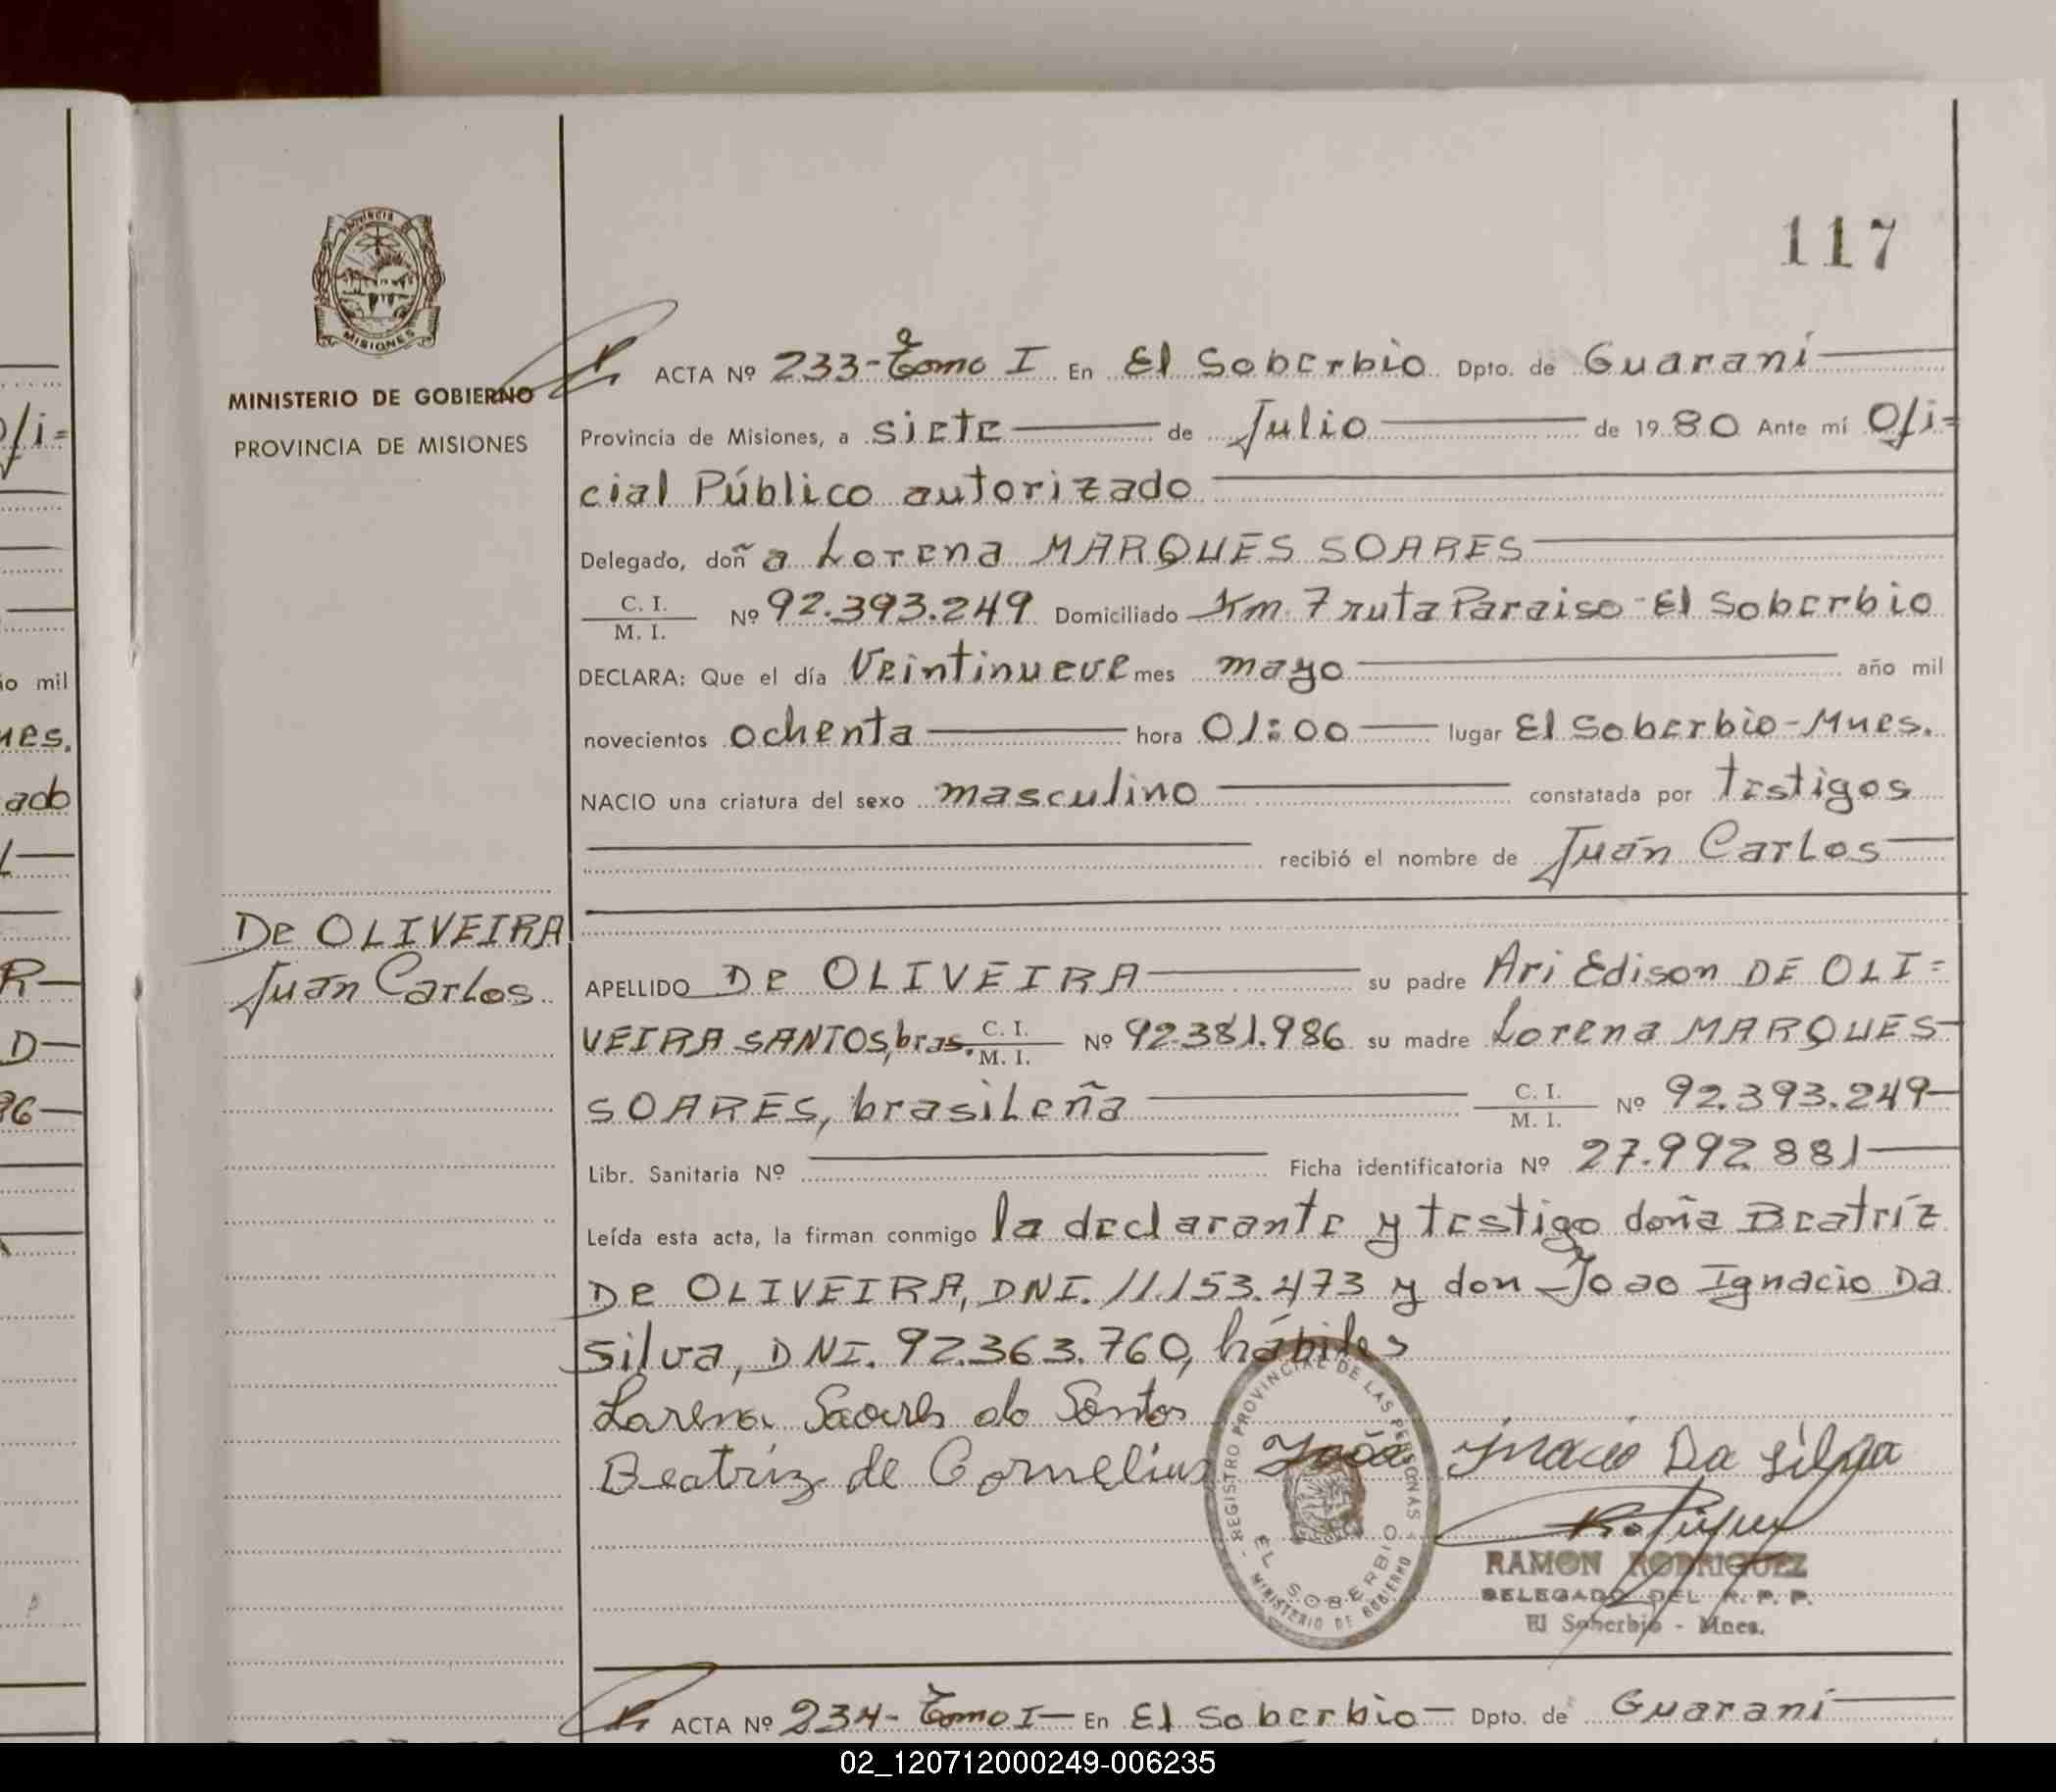 117
PROVINCIA
MISIONES
MINISTERIO DE GOBIERNO
PROVINCIA DE MISIONES
ACTA Nº 233-Tomo I En El Soberbio Dpto. de Guaraní
Provincia de Misiones, a siete de Julio de 1980 Ante mí Ofi=
cial Público autorizado
Delegado, doña Lorena MARQUES SOARES
C. I.
M. I. Nº 92.393.249 Domiciliado Km. 7 ruta Paraiso-El Soberbio
DECLARA: Que el día Veintinueve mes mayo año mil
novecientos ochenta hora 01:00 lugar El Soberbio-Mnes.
NACIO una criatura del sexo masculino constatada por testigos
recibió el nombre de Juán Carlos
De OLIVEIRA
Juan Carlos
APELLIDO De OLIVEIRA su padre Ari Edison DE OLI=
VEIRA SANTOS, bras. C. I.
M. I. Nº 92.381.986 su madre Lorena MARQUES
SOARES, brasileña C. I.
M. I. Nº 92.393.249
Libr. Sanitaria Nº Ficha identificatoria Nº 27.992.881
Leída esta acta, la firman conmigo la declarante y testigo doña Beatríz
De OLIVEIRA, DNI. 11.153.473 y don Joao Ignacio Da
Silva, DNI. 92.363.760, hábiles
Lorena Soares do Santos
Beatriz de Cornelius João Inacio Da Silva
REGISTRO PROVINCIAL DE LAS PERSONAS
EL SOBERBIO
MINISTERIO DE GOBIERNO
RAMON RODRIGUEZ
DELEGADO DEL R. P. P.
El Soberbio - Mnes.
ACTA Nº 234- Tomo I En El Soberbio Dpto. de Guaraní
ofi=
io mil
nes.
ado
R
D
96
02_120712000249-006235